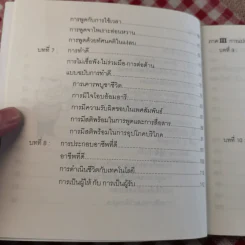 การพูดกับการใช้เวลา
การพูดจาไพเราะอ่อนหวาน
การพูดด้วยทัศนคติในแง่บวก
บทที่ 7 : การทำดี
การไม่เชื่อฟัง ไม่ร่วมมือ การต่อต้าน
แบบฉบับการทำดี
การเคารพบูชาชีวิต
การมีใจโอบอ้อมอารี
การมีความรับผิดชอบในเพศสัมพันธ์
การมีสติพร้อมในการพูดและการสื่อสาร
การมีสติพร้อมในการอุปโภคบริโภค
บทที่ 8 : การประกอบอาชีพที่ดี
อาชีพที่ดี
การดำเนินชีวิตกับเทคโนโลยี
การเป็นผู้ให้ กับ การเป็นผู้รับ
ภาค III
บทที่